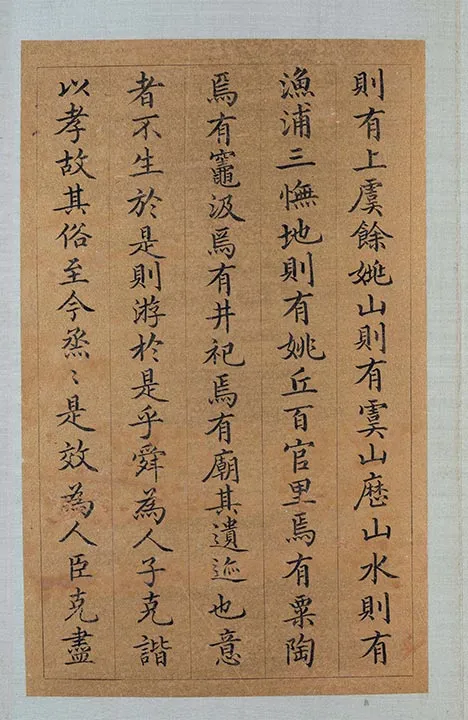 則有上虞餘姚山則有虞山歷山水則有
漁浦三憮地則有姚丘百官里焉有粟陶
焉有竈汲焉有井祀焉有廟其遺迹也意
者不生於是則游於是乎舜為人子克諧
以孝故其俗至今烝〻是效為人臣克盡